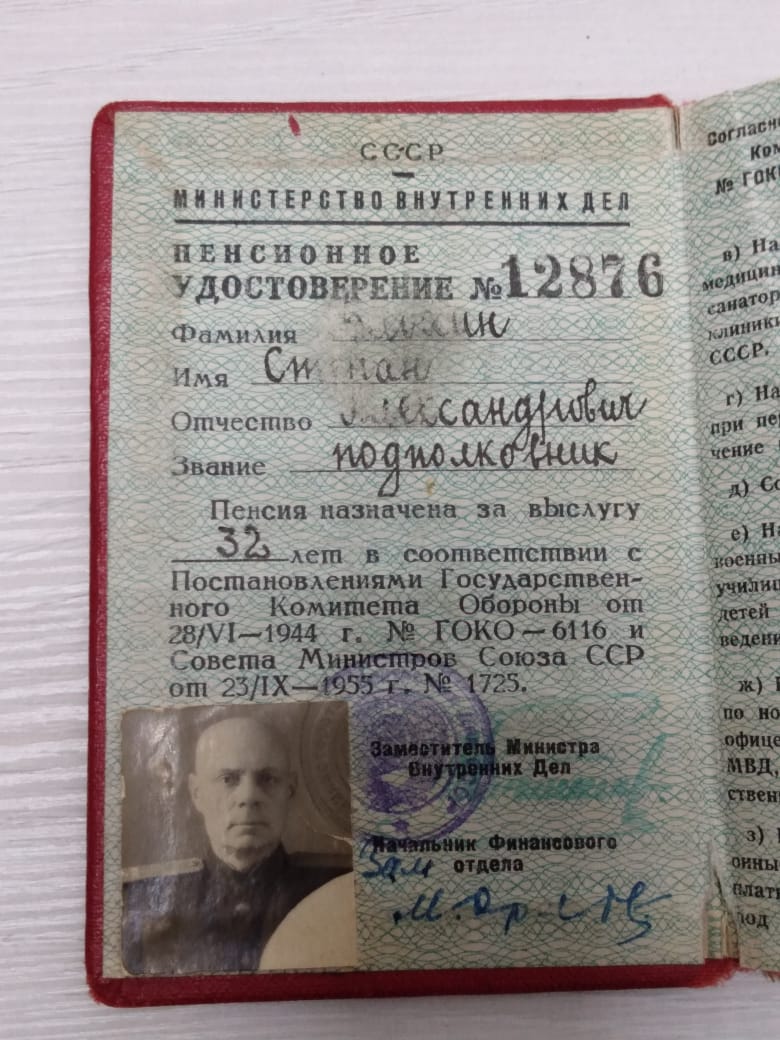 СССР
МИНИСТЕРСТВО ВНУТРЕННИХ ДЕЛ
ПЕНСИОННОЕ
УДОСТОВЕРЕНИЕ №12876
Фамилия
Имя Степан
Отчество Александрович
Звание подполковник
Пенсия назначена за выслугу
32 лет в соответствии с
Постановлениями Государствен-
ного Комитета Обороны от
28/VI—1944 г. № ГОКО—6116 и
Совета Министров Союза ССР
от 23/IX—1955 г. № 1725.
Заместитель Министра
Внутренних Дел
Начальник Финансового
Зам отдела
№ ГОКО
в) На
медицин
санатор
клиники
СССР.
г) На
при пе
чение
д) Со
е) На
военны
училищ
детей
ведени
ж)
по но
офице
МВД,
ствен
з)
платы
под